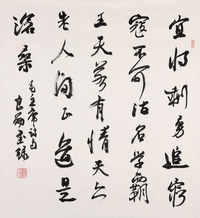 宜将剩勇追窮
寇不可沽名学霸
王天若有情天亦
老人间正道是
沧桑
毛主席诗句